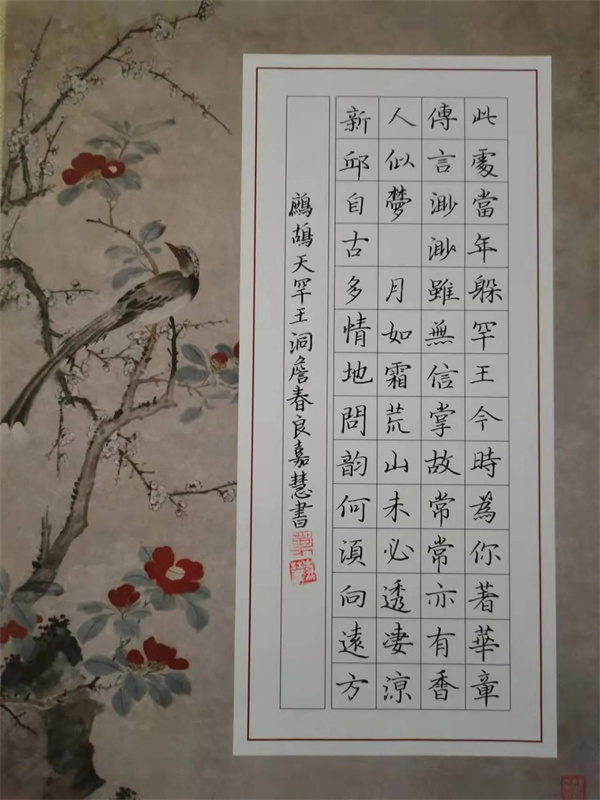 此處當年躲罕王今時為你著華章
傳言渺渺雖無信掌故常常亦有香
人似夢 月如霜荒山未必透凄涼
新邱自古多情地問韵何須向遠方
鷓鴣天罕王洞詹春良嘉慧書